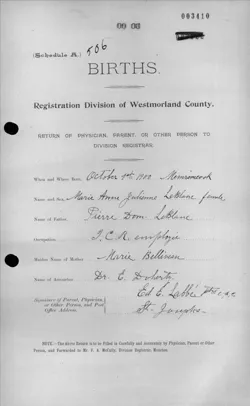 003410
(Schedule A.) 506
BIRTHS.
Registration Division of Westmorland County.
RETURN OF PHYSICIAN, PARENT, OR OTHER PERSON TO
DIVISION REGISTRAR.
When and Where Born, October 1902 Memramcook
Name and Sex, Marie Anna Julienne LeBlanc female
Name of Father, Pierre Dom. LeBlanc
Occupation, I.C.R. employee
Maiden Name of Mother, Marie Belliveau
Name of Accoucher, Dr. E. Doherty
Signature of Parent, Physician, Ed. E. Labbé
or Other Person, and Post
Office Address. St. Josephs
NOTE.—The Above Return is to be Filled in Carefully and Accurately by Physician, Parent or Other
Person, and Forwarded to Mr. V. A. McFully, Division Registrar, Moncton.